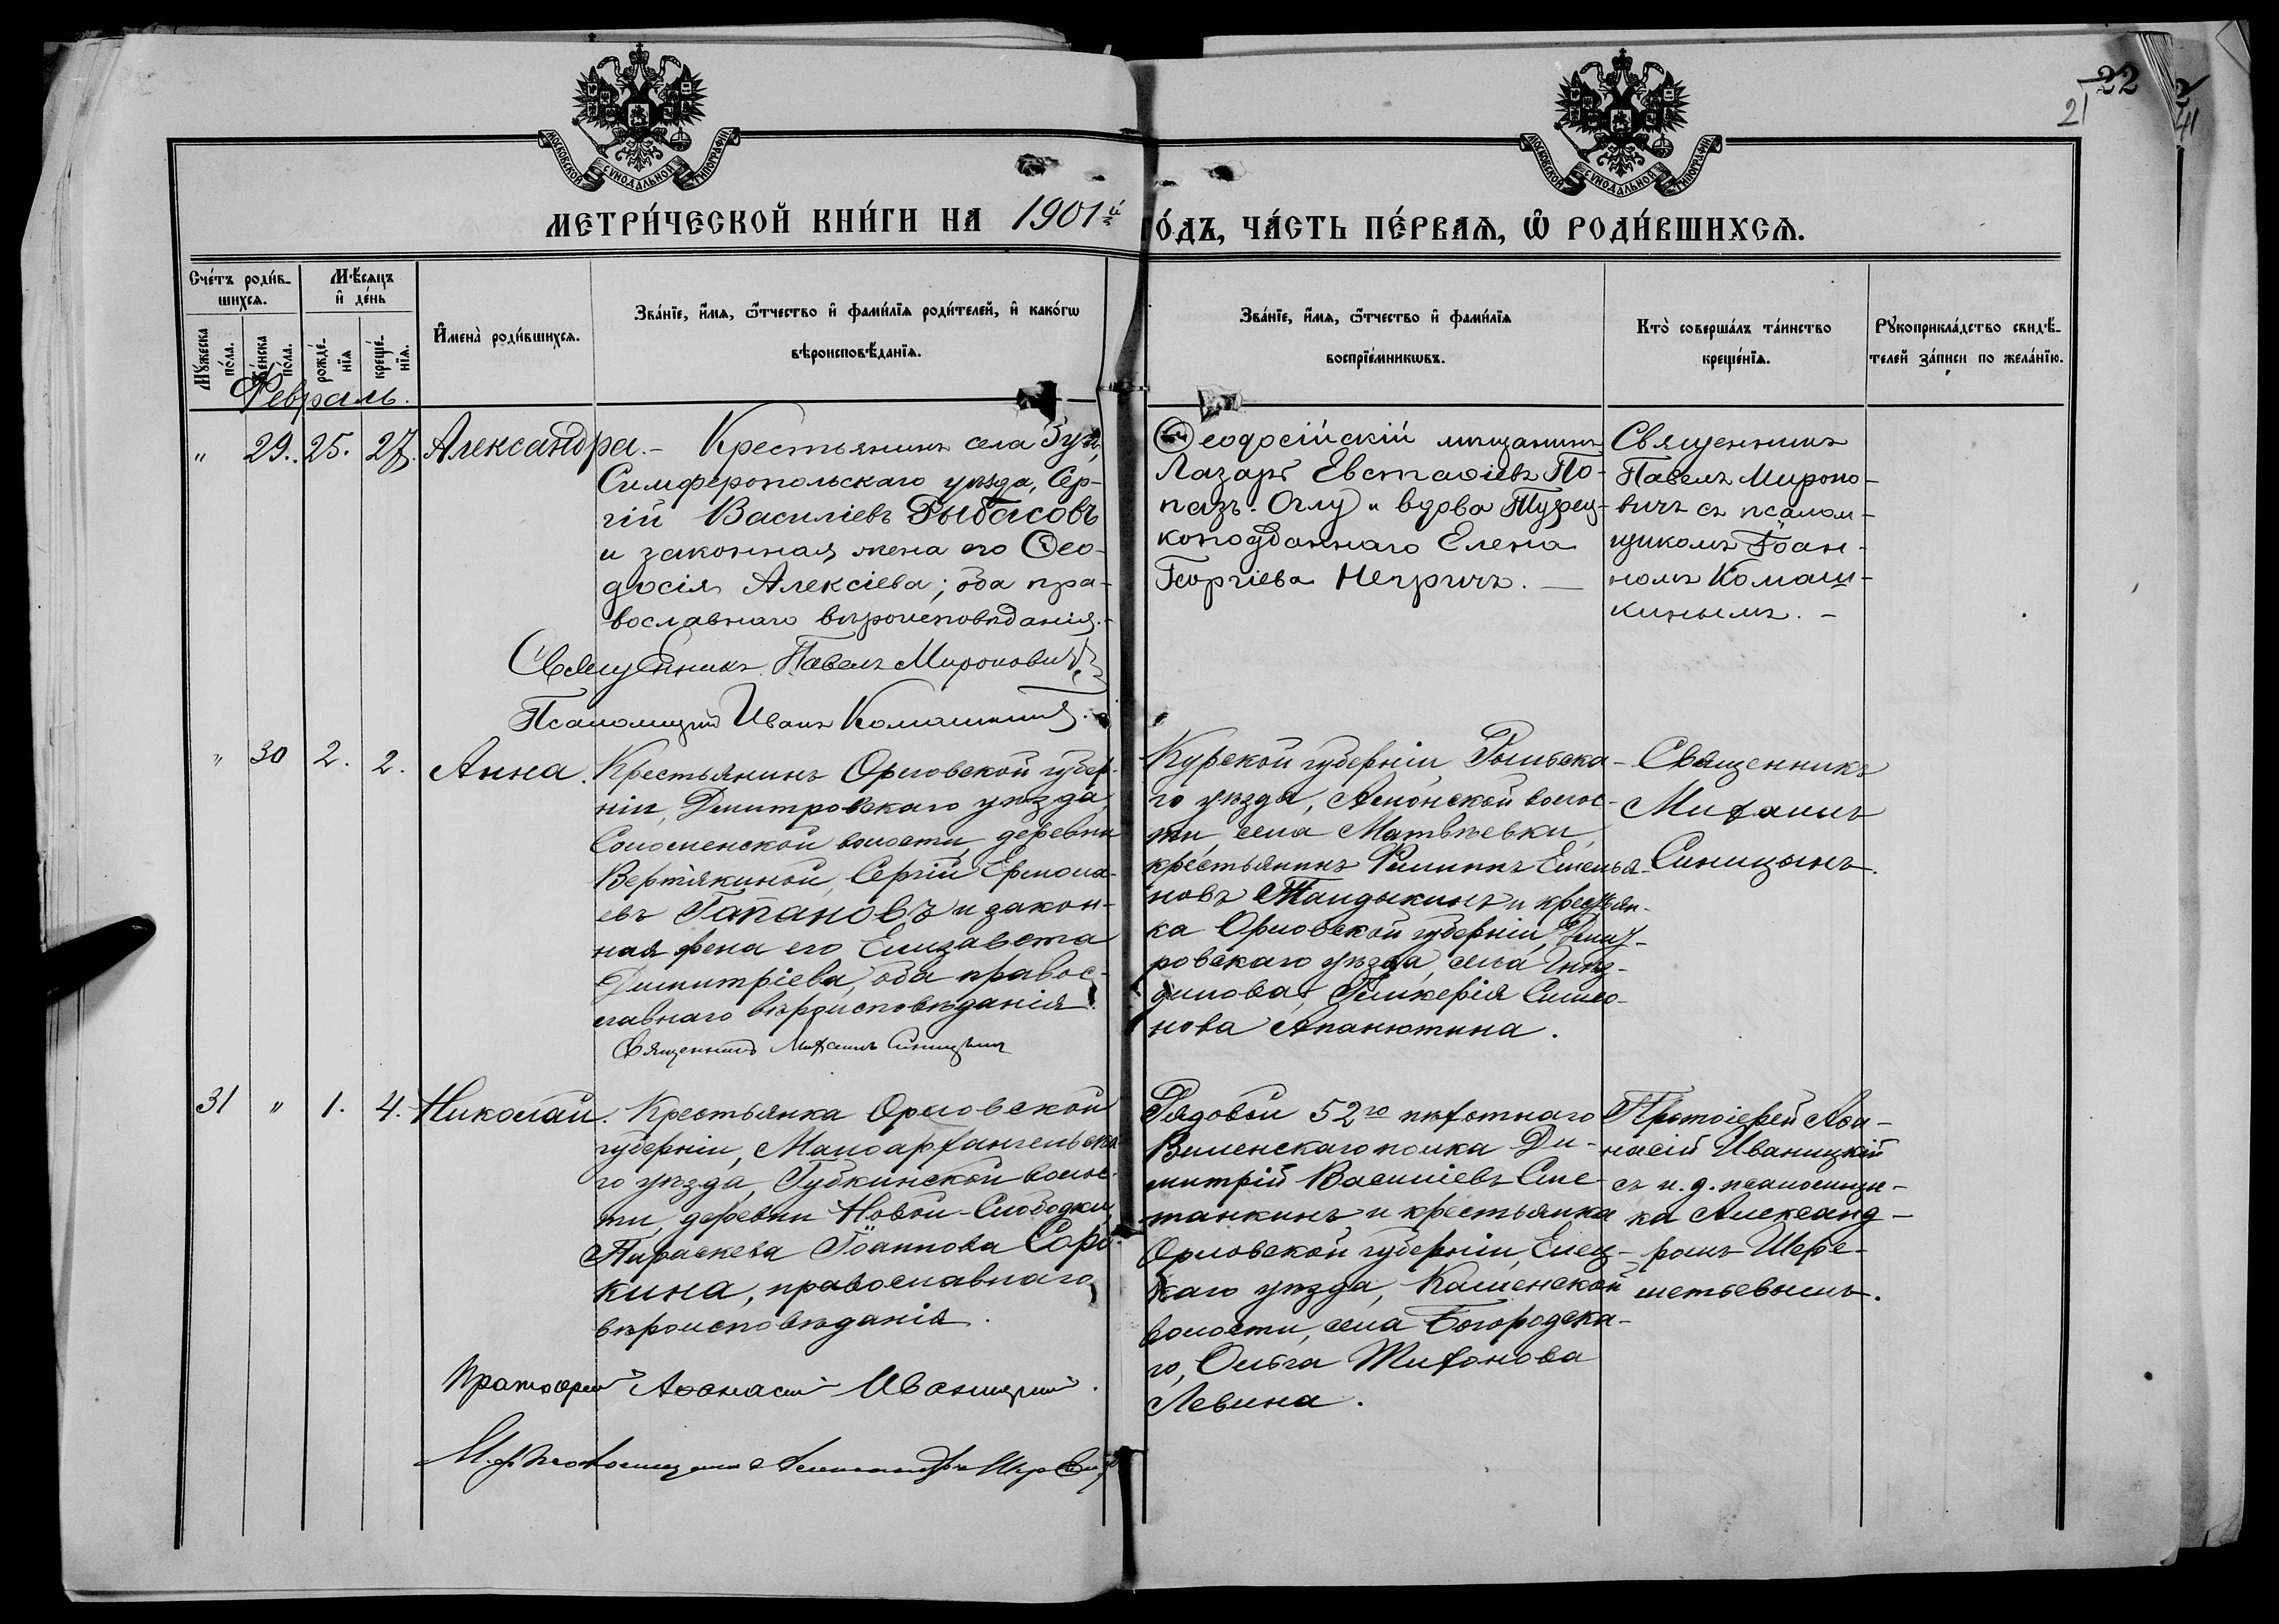 22
21
41
МОСКОВСКОЙ СѴНОДАЛЬНОЙ ТИПОГРАФІИ
МОСКОВСКОЙ СѴНОДАЛЬНОЙ ТИПОГРАФІИ
МЕТРИ́ЧЕСКОЙ КНИ́ГИ НА 1901й
О́ДЪ, ЧА́СТЬ ПЕ́РВАѦ, Ѡ҆ РОДИ́ВШИХСѦ.
Сче́тъ роди́в-
шихсѧ.
Мѣ́сѧцъ
и҆ де́нь
Мꙋ́жеска
по́ла.
Же́нска
по́ла.
рожде́-
нїѧ
креще́-
нїѧ.
И҆мена̀ роди́вшихсѧ.
Зва́нїе, и҆́мѧ, ѻ҆́тчество и҆ фами́лїѧ роди́телей, и҆ како́гѡ
вѣроисповѣ́данїѧ.
Зва́нїе, и҆́мѧ, ѻ҆́тчество и҆ фами́лїѧ
воспрїе́мникѡвъ.
Кто̀ соверша́лъ та́инство
креще́нїѧ.
Рꙋкоприкла́дство свидѣ́-
телей за́писи по жела́нїю.
Февраль.
" 29. 25. 27. Александра. – Крестьянинъ села Зуи,
Симферопольскаго уѣзда, Сер-
гій Василіевъ Рыбасовъ
и законная жена его Ѳео-
досія Алексіева; оба пра-
вославнаго вѣроисповѣданія.-
Священникъ Павелъ Мироновичъ
Псаломщикъ Иванъ Комашкинъ.
Ѳеодосійскій мѣщанинъ
Лазарь Евстаѳіевъ По-
пазъ-Оглу и вдова Турец-
коподданнаго Елена
Георгіева Негричъ. –
Священникъ
Павелъ Мироно-
вичъ съ псалом-
щикомъ Іоан-
номъ Комаш-
кинымъ. –
" 30 2. 2. Анна. Крестьянинъ Орловской губер-
ніи, Дмитровскаго уѣзда,
Соломенской волости, деревни
Вертякиной, Сергій Ермола-
евъ Гапановъ и закон-
ная жена его Елизавета
Димитріева, оба правос-
лавнаго вѣроисповѣданія.
Священникъ Михаилъ Синицынъ
Курской губерніи, Рыльска-
го уѣзда, Асмонской волос-
ти села Матвѣевки,
крестьянинъ Филиппъ Емелья-
новъ Талдыкинъ и крестьян-
ка Орловской губерніи, Дмит-
ровскаго уѣзда, села Гнѣз-
дилова, Гликерія Симео-
нова Апанютина.
Священникъ
Михаилъ
Синицынъ.
31 " 1. 4. Николай. Крестьянка Орловской
губерніи, Малоархангельска-
го уѣзда, Губкинской волос-
ти, деревни Новой-Слободки,
Параскева Іоаннова Соро-
кина, православнаго
вѣроисповѣданія.
Протоіерей Аѳанасій Иваницкій.
Рядовой 52го пѣхотнаго
Виленскаго полка Ди-
митрій Василіевъ Сме-
танкинъ и крестьянка
Орловской губерніи, Елец-
каго уѣзда, Каменской
волости, села Богородска-
го, Ольга Тихонова
Левина.
Протоіерей Аѳа-
насій Иваницкій
съ и. д. псаломщи-
ка Александ-
ромъ Шере-
метьевымъ.